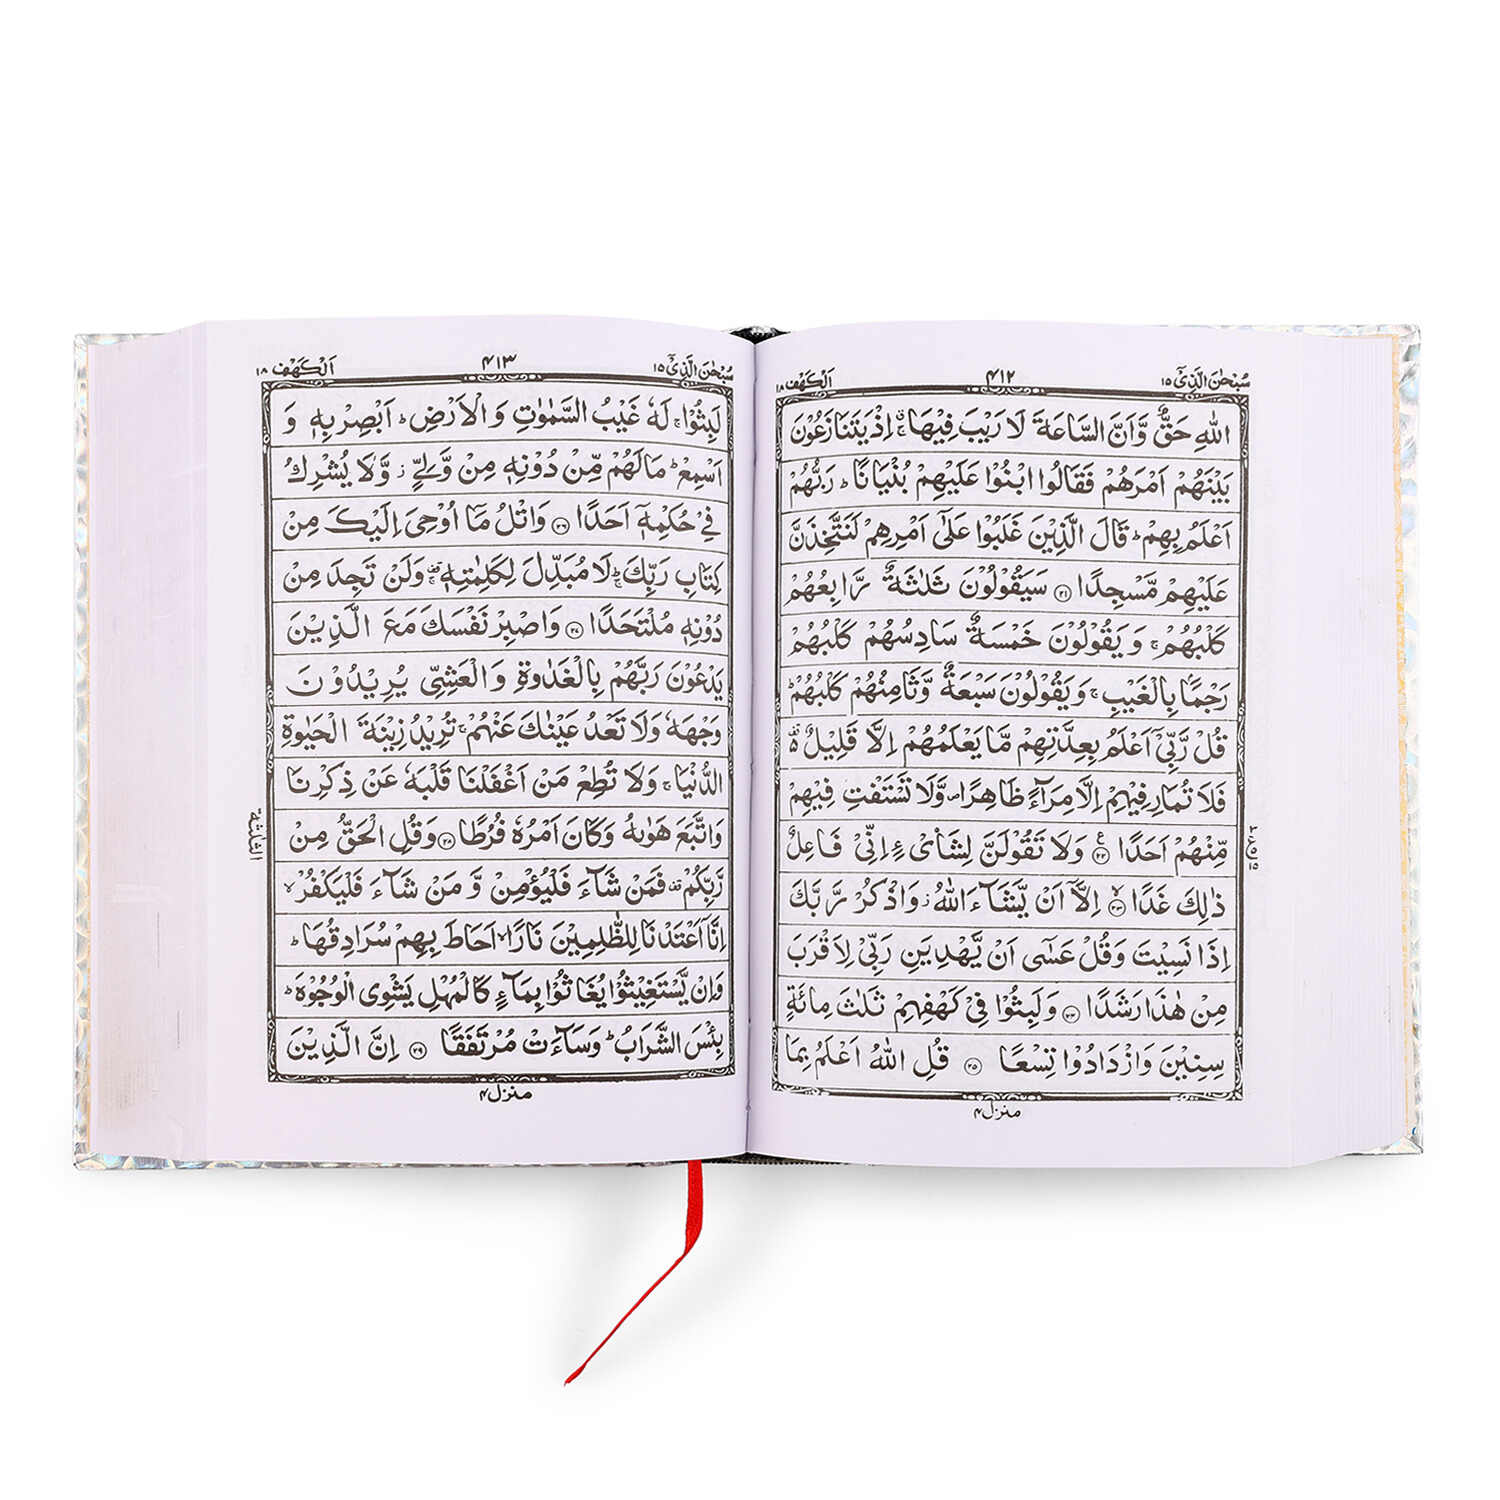 سُبْحٰنَ الَّذِیْۤ ۱۵ ۴۱۲ اَلْكَهْف ۱۸
اللّٰهِ حَقٌّ وَّاَنَّ السَّاعَةَ لَا رَیْبَ فِیْهَا ۚ۬ اِذْ یَتَنَازَعُوْنَ
بَیْنَهُمْ اَمْرَهُمْ فَقَالُوا ابْنُوْا عَلَیْهِمْ بُنْیَانًا ؕ رَبُّهُمْ
اَعْلَمُ بِهِمْ ؕ قَالَ الَّذِیْنَ غَلَبُوْا عَلٰۤی اَمْرِهِمْ لَنَتَّخِذَنَّ
عَلَیْهِمْ مَّسْجِدًا ۲۱ سَیَقُوْلُوْنَ ثَلٰثَةٌ رَّابِعُهُمْ
كَلْبُهُمْ ۚ وَ یَقُوْلُوْنَ خَمْسَةٌ سَادِسُهُمْ كَلْبُهُمْ
رَجْمًۢا بِالْغَیْبِ ۚ وَ یَقُوْلُوْنَ سَبْعَةٌ وَّثَامِنُهُمْ كَلْبُهُمْ ؕ
قُلْ رَّبِّیْۤ اَعْلَمُ بِعِدَّتِهِمْ مَّا یَعْلَمُهُمْ اِلَّا قَلِیْلٌ
فَلَا تُمَارِ فِیْهِمْ اِلَّا مِرَآءً ظَاهِرًا ۪ وَّلَا تَسْتَفْتِ فِیْهِمْ
مِّنْهُمْ اَحَدًا ۲۲ وَلَا تَقُوْلَنَّ لِشَایْءٍ اِنِّیْ فَاعِلٌ
ذٰلِكَ غَدًا ۲۳ اِلَّاۤ اَنْ یَّشَآءَ اللّٰهُ ؗ وَاذْكُرْ رَّبَّكَ
اِذَا نَسِیْتَ وَقُلْ عَسٰۤی اَنْ یَّهْدِیَنِ رَبِّیْ لِاَقْرَبَ
مِنْ هٰذَا رَشَدًا ۲۴ وَلَبِثُوْا فِیْ كَهْفِهِمْ ثَلٰثَ مِائَةٍ
سِنِیْنَ وَازْدَادُوْا تِسْعًا ۲۵ قُلِ اللّٰهُ اَعْلَمُ بِمَا
منزل ۴
سُبْحٰنَ الَّذِیْۤ ۱۵ ۴۱۳ اَلْكَهْف ۱۸
لَبِثُوْا ۚ لَهٗ غَیْبُ السَّمٰوٰتِ وَالْاَرْضِ ؕ اَبْصِرْ بِهٖ وَ
اَسْمِعْ ؕ مَا لَهُمْ مِّنْ دُوْنِهٖ مِنْ وَّلِیٍّ ؗ وَّلَا یُشْرِكُ
فِیْ حُكْمِهٖۤ اَحَدًا ۲۶ وَاتْلُ مَاۤ اُوْحِیَ اِلَیْكَ مِنْ
كِتَابِ رَبِّكَ ؕۚ لَا مُبَدِّلَ لِكَلِمٰتِهٖ ۫ۚ وَلَنْ تَجِدَ مِنْ
دُوْنِهٖ مُلْتَحَدًا ۲۷ وَاصْبِرْ نَفْسَكَ مَعَ الَّذِیْنَ
یَدْعُوْنَ رَبَّهُمْ بِالْغَدٰوةِ وَالْعَشِیِّ یُرِیْدُوْنَ
وَجْهَهٗ وَلَا تَعْدُ عَیْنٰكَ عَنْهُمْ ۚ تُرِیْدُ زِیْنَةَ الْحَیٰوةِ
الدُّنْیَا ۚ وَلَا تُطِعْ مَنْ اَغْفَلْنَا قَلْبَهٗ عَنْ ذِكْرِنَا
وَاتَّبَعَ هَوٰىهُ وَكَانَ اَمْرُهٗ فُرُطًا ۲۸ وَقُلِ الْحَقُّ مِنْ
رَّبِّكُمْ ۫ فَمَنْ شَآءَ فَلْیُؤْمِنْ وَّ مَنْ شَآءَ فَلْیَكْفُرْ ۙ
اِنَّاۤ اَعْتَدْنَا لِلظّٰلِمِیْنَ نَارًا ۙ اَحَاطَ بِهِمْ سُرَادِقُهَا ؕ
وَاِنْ یَّسْتَغِیْثُوْا یُغَاثُوْا بِمَآءٍ كَالْمُهْلِ یَشْوِی الْوُجُوْهَ ؕ
بِئْسَ الشَّرَابُ ؕ وَسَآءَتْ مُرْتَفَقًا ۲۹ اِنَّ الَّذِیْنَ
الثلثة
منزل ۴